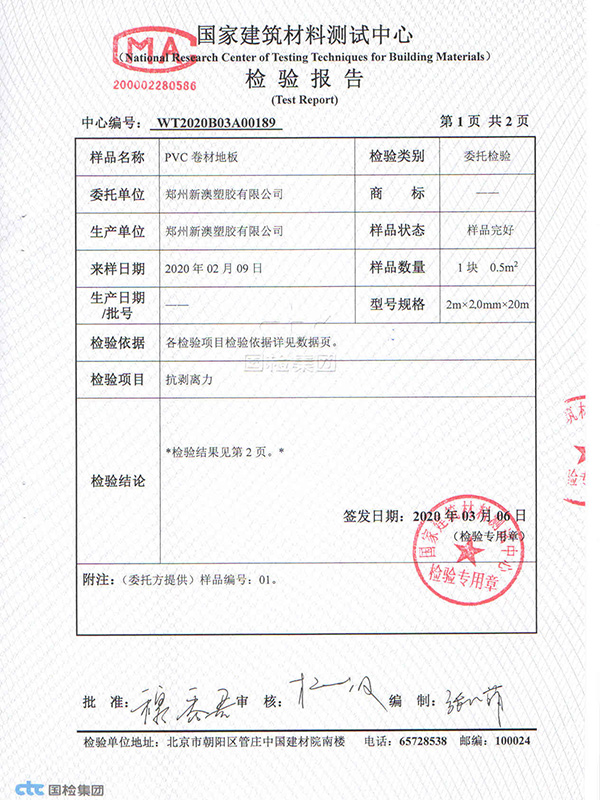 MA
200002280586
国家建筑材料测试中心
（National Research Center of Testing Techniques for Building Materials）
检 验 报 告
(Test Report)
中心编号： WT2020B03A00189 第 1 页 共 2 页
样品名称 PVC 卷材地板 检验类别 委托检验
委托单位 郑州新澳塑胶有限公司 商 标 ——
生产单位 郑州新澳塑胶有限公司 样品状态 样品完好
来样日期 2020 年 02 月 09 日 样品数量 1 块 0.5m²
生产日期/批号 —— 型号规格 2m×2.0mm×20m
检验依据 各检验项目检验依据详见数据页。
国检集团
检验项目 抗剥离力
检验结论 *检验结果见第 2 页。*
签发日期：2020 年 03 月 06 日
（检验专用章）
国家建筑材料测试中心
检验专用章
附注：（委托方提供）样品编号：01。
批 准： 审 核： 编 制：
检验单位地址：北京市朝阳区管庄中国建材院南楼 电话：65728538 邮编：100024
ctc 国检集团